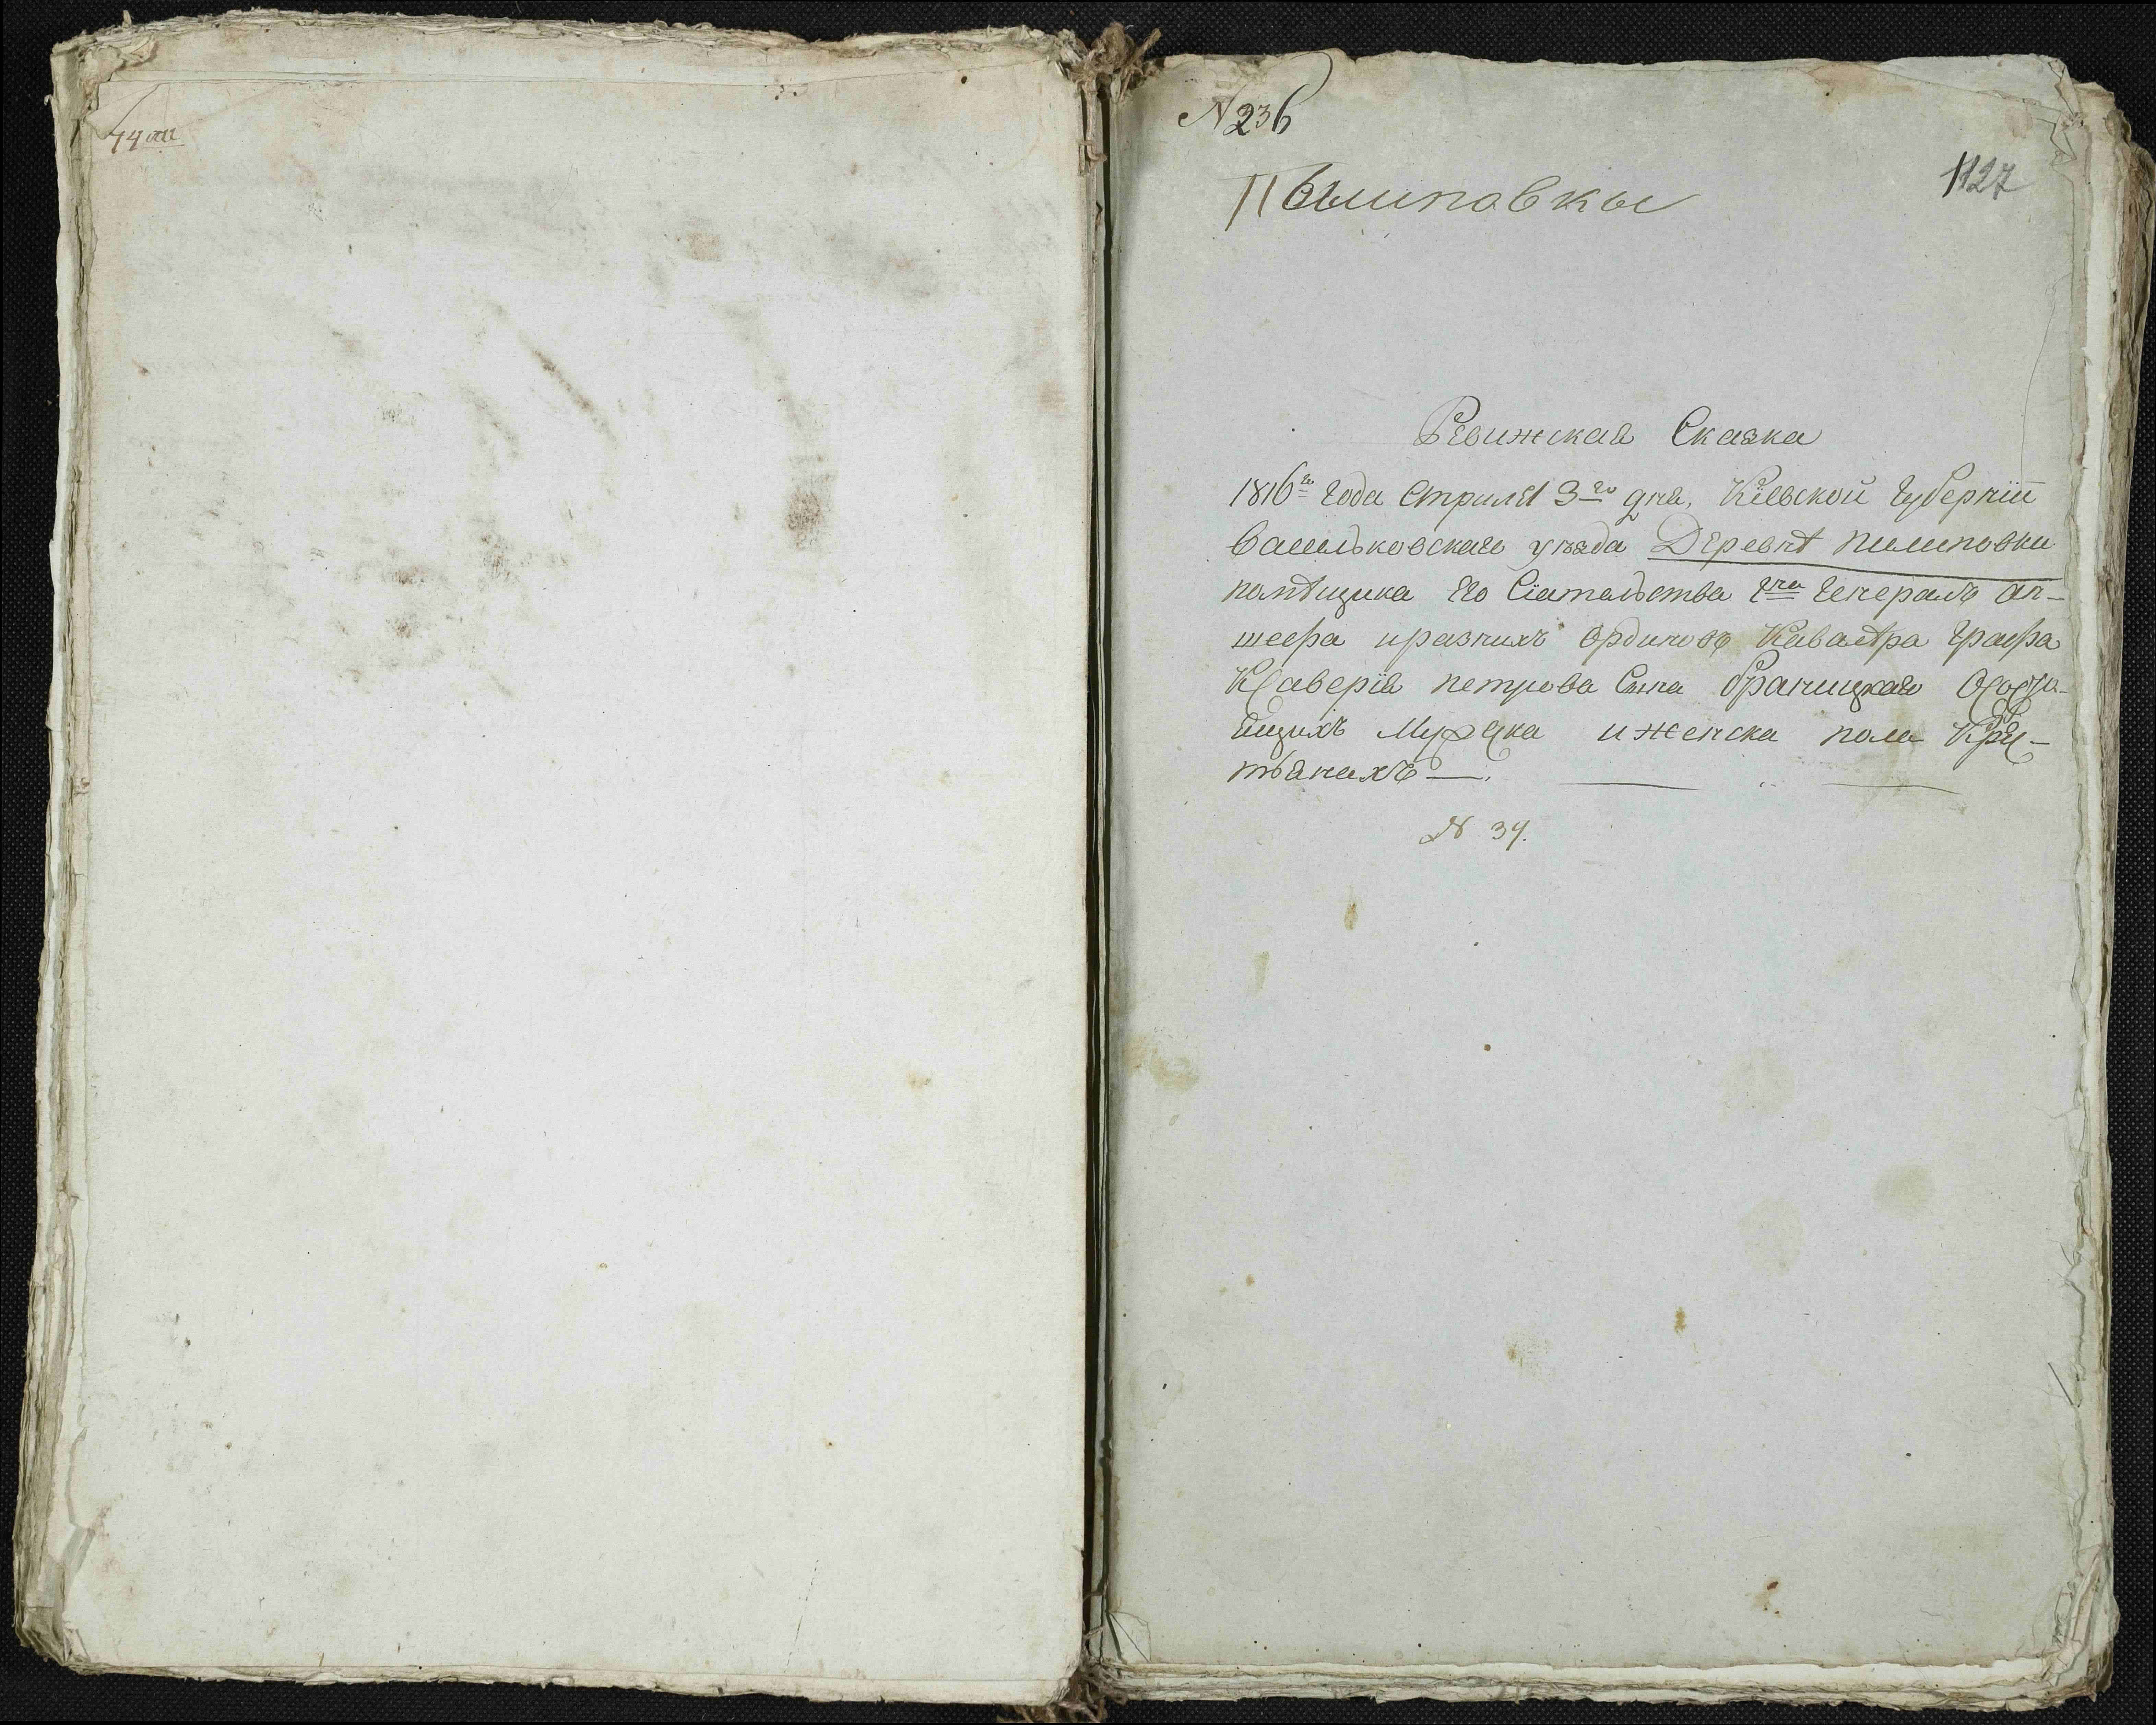 N 236
1127
Пылиповкы
Ревижская Сказка
1816го года Априля 3го дня, Кіевской Губерніи
Васильковскаго уезда Деревнѣ пилиповки
помѣщика Его Сіятельства гна Генералъ ан-
шефа иразнихъ Ординовъ Каваліѣра Графа
Ксаверія петрова Сына браницкаго Осостоя-
ящихъ Мужеска иженска пола Кре-
тянахъ —
N 34.